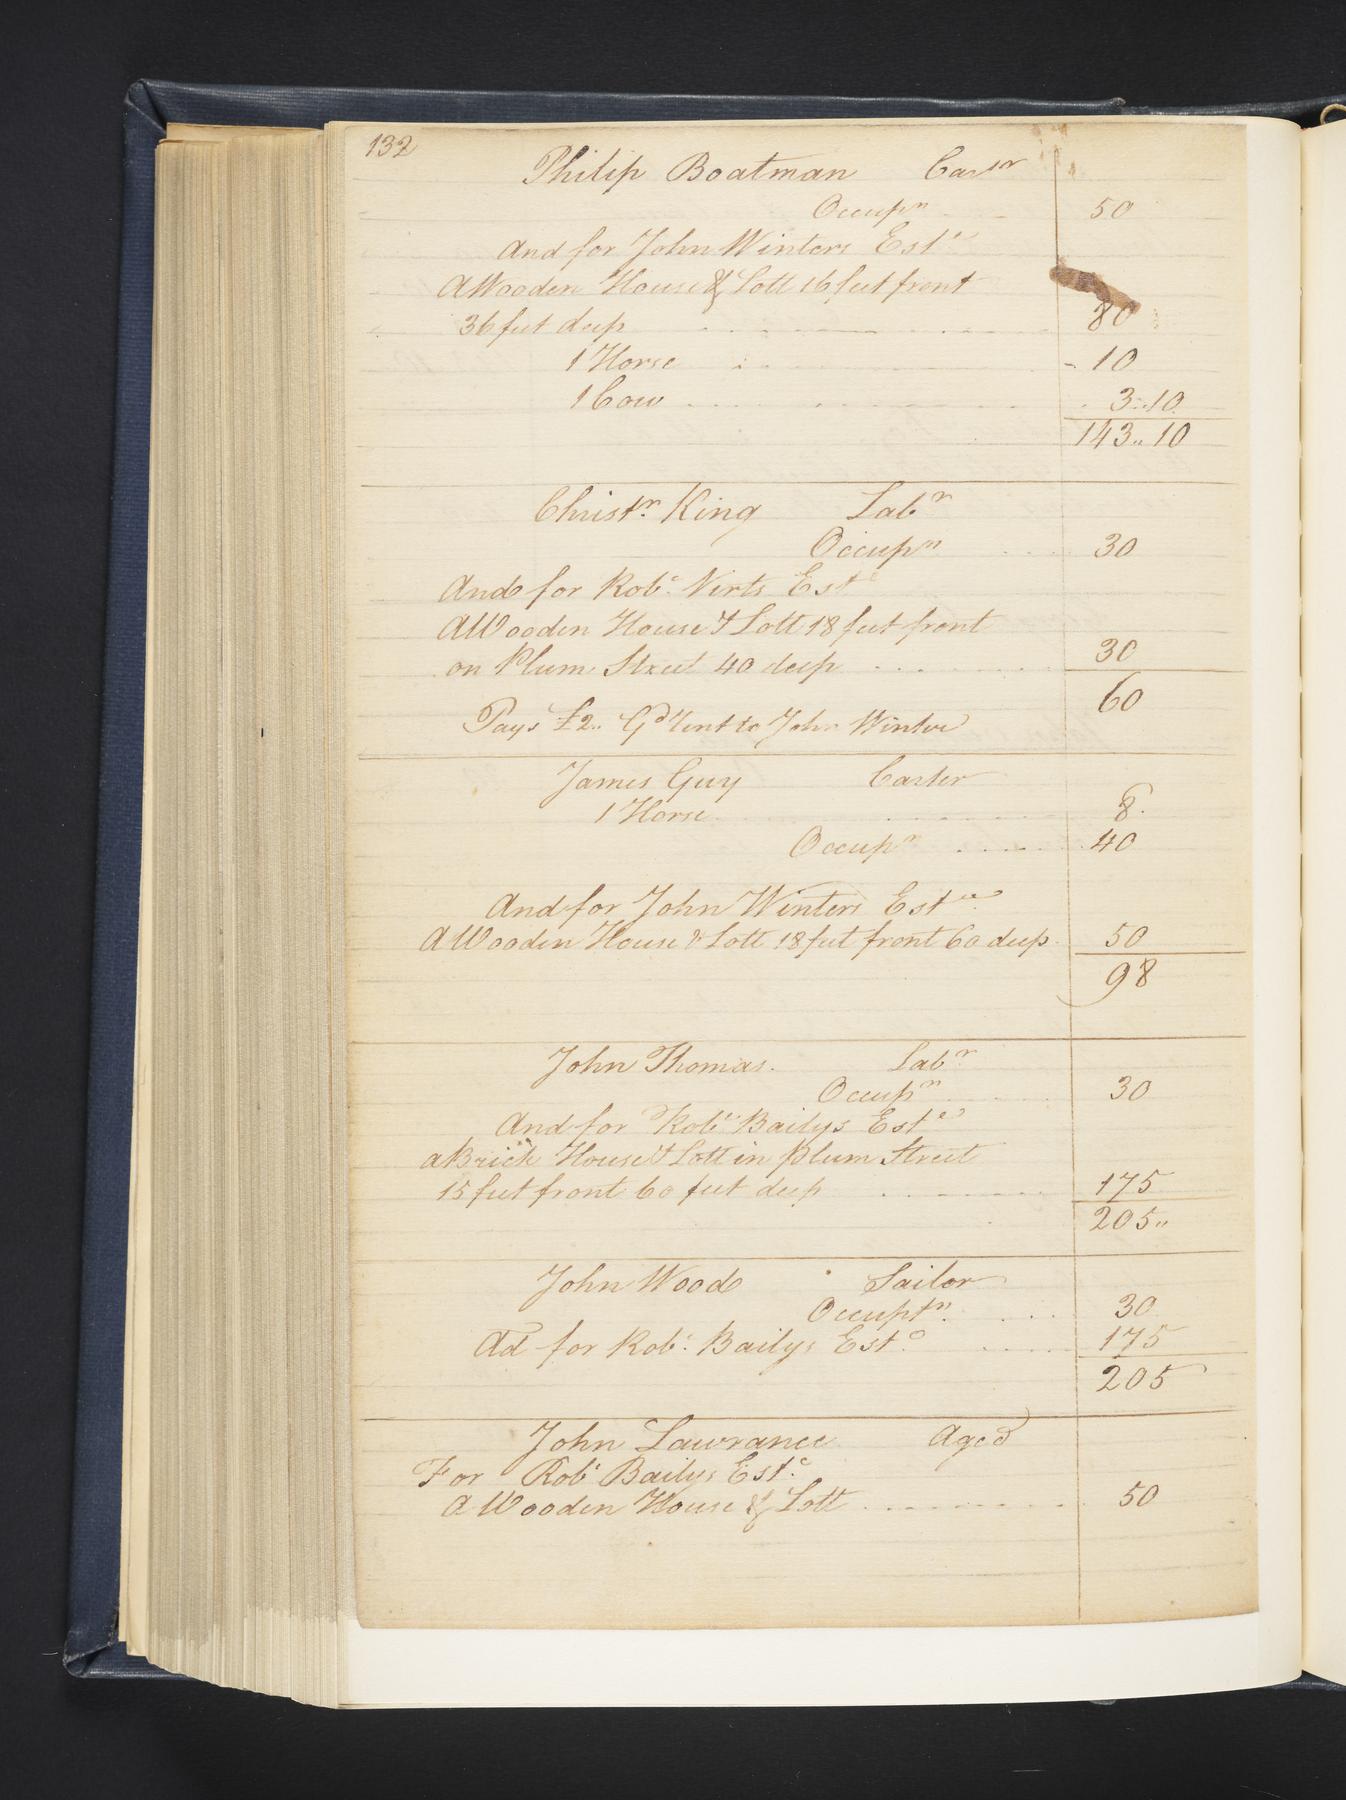 132
Philip Boatman Cartr
Occupn 50
And for John Winters Este
A Wooden House & Lott 16 feet front
36 feet deep 80
1 Horse 10
1 Cow 3..10
143..10
Christr. King Labr
Occupn 30
And for Robt. Nirts Este
A Wooden House & Lott 18 feet front
on Plum Street 40 deep 30
60
Pays £2.. Gd Rent to John Winter
James Guy Carter
1 Horse 8
Occupn 40
And for John Winters Este
A Wooden House & Lott 18 feet front 60 deep 50
98
John Thomas. Labr
Occupn 30
And for Robt Bailys Este
a Brick House & Lott in Plum Street
15 feet front 60 feet deep 175
205..
John Wood Sailor
Occuptn. 30
Ad for Robt. Bailys Este 175
205
John Lawrance Aged
For Robt Bailys Este.
A Wooden House & Lott 50